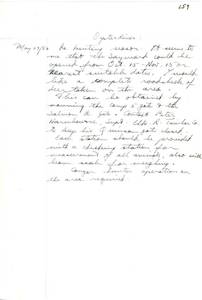 159
Oyster River
May 27/60 Re hunting season. It seems to
me that the Sayward could be
opened from Oct 15 - Nov. 15 or
nearest suitable dates. I would
like a complete roadcheck of
deer taken on the area.
This can be obtained by
manning the Camp 5 gate & the
Salmon R. gate. Contact Peter
Supt. Elk R. to
keep his gate closed.
Each station should be provided
with a checking station for
measurement of all animals, also with
beam scale for weighing.
Conger hunter operation on
the area required.